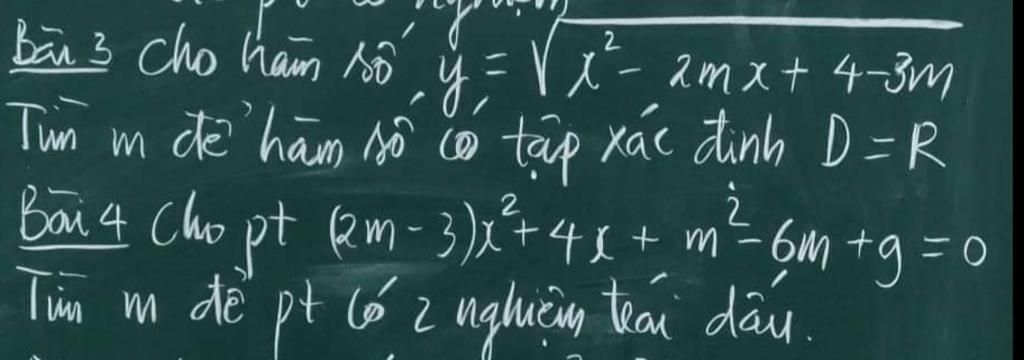 pt có nghiệm
Bài 3 Cho hàm số y = √x² - 2mx + 4-3m
Tìm m để hàm số có tập xác định D = R
Bài 4 Cho pt (2m - 3)x² + 4x + m² - 6m + 9 = 0
Tìm m để pt có 2 nghiệm trái dấu.